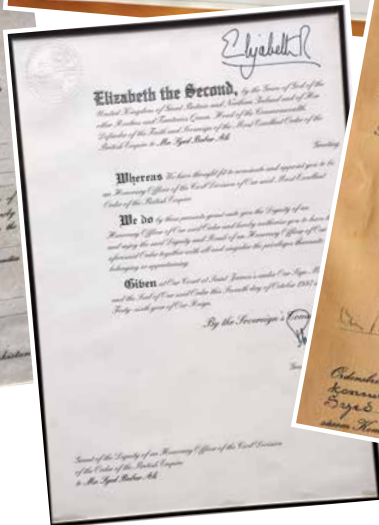 Elizabeth R
Elizabeth the Second, by the Grace of God of the
United Kingdom of Great Britain and Northern Ireland and of Her
other Realms and Territories Queen, Head of the Commonwealth,
Defender of the Faith and Sovereign of the Most Excellent Order of the
British Empire to Mr. Syed Babar Ali
Greeting
Whereas We have thought fit to nominate and appoint you to be
an Honorary Officer of the Civil Division of Our said Most Excellent
Order of the British Empire
We do by these presents grant unto you the Dignity of an
Honorary Officer of Our said Order and hereby authorise you to
and enjoy the said Dignity and Rank of an Honorary Officer of
aforesaid Order together with all and singular the privileges thereunto
belonging or appertaining.
Given at Our Court at Saint James's under Our Sign
and the Seal of Our said Order this Seventh day of October 1997
Forty-sixth year of Our Reign.
By the Sovereign's
Grant of the Dignity of an Honorary Officer of the Civil Division
of the Order of the British Empire
to Mr. Syed Babar Ali
Syed